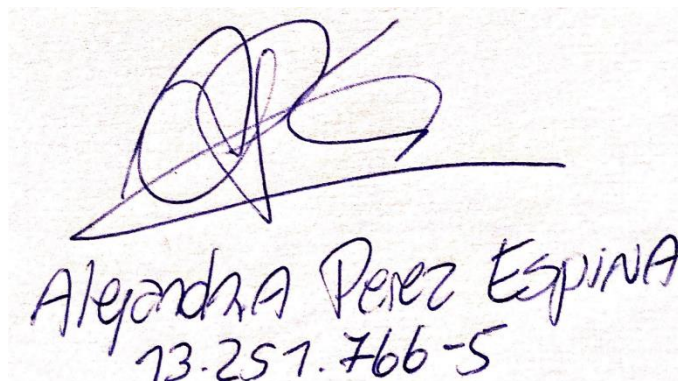 Alejandra Perez Espina
13.251.766-5